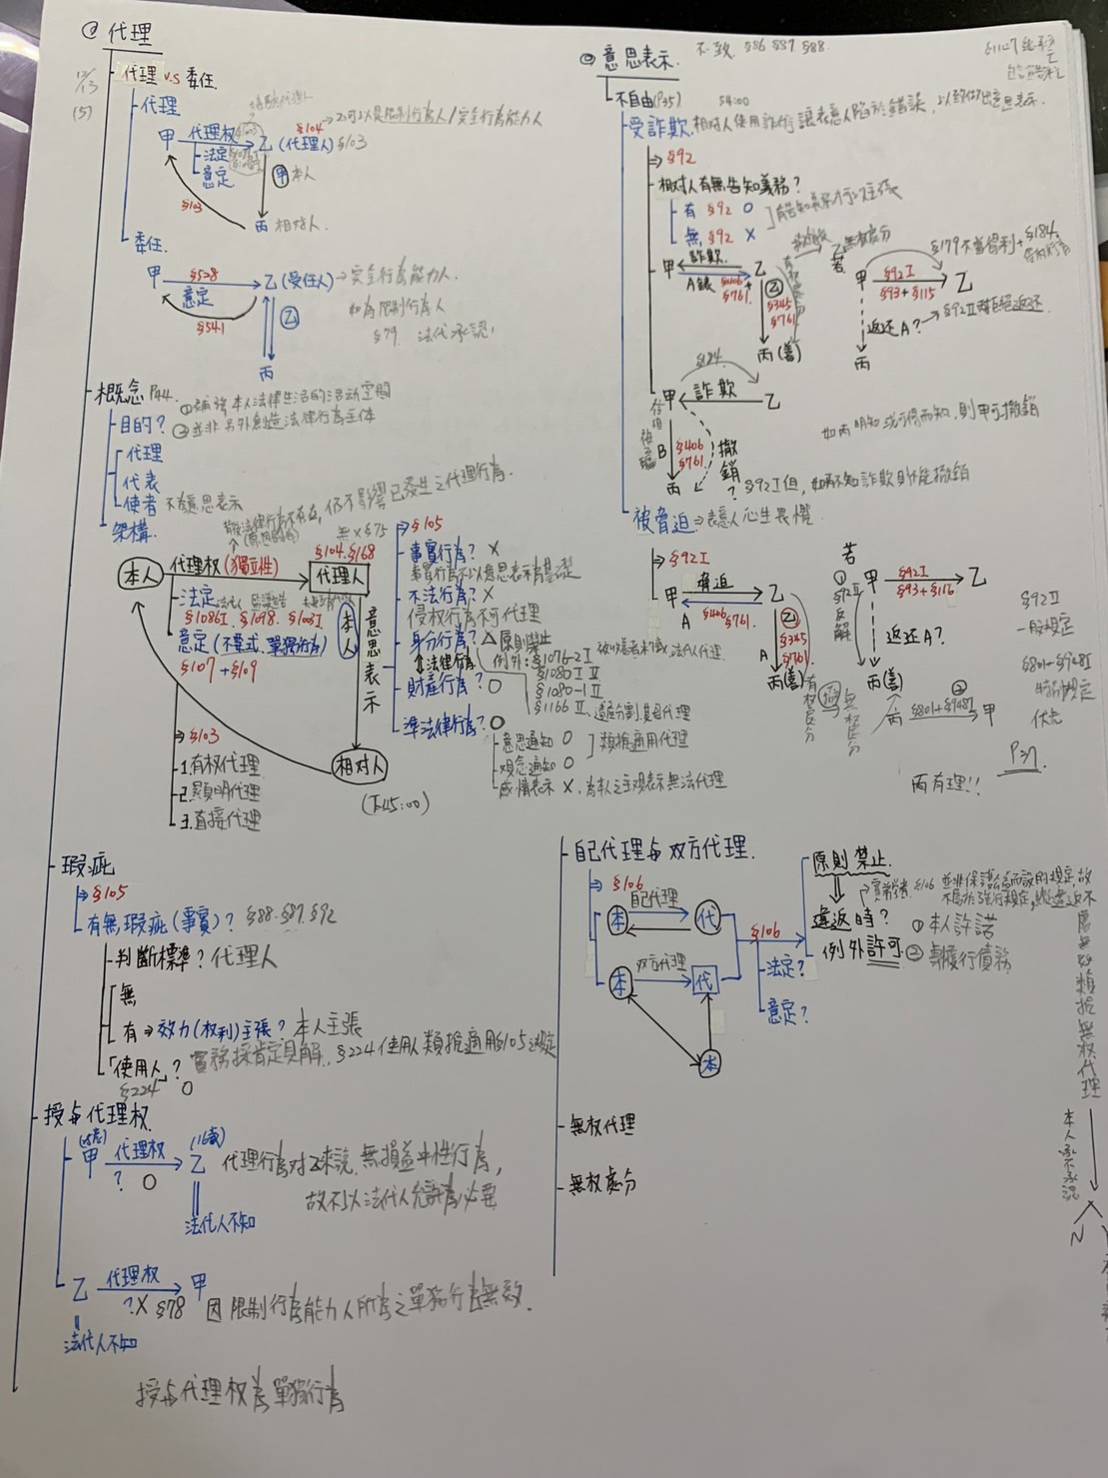 代理
12/13
(5)
代理 v.s 委任
代理
甲 代理权 乙(代理人) §103
§104 →乙可以是限制行為人/完全行為能力人
法定
意定
甲 本人
§103
丙 相对人.
委任
甲 §528 乙(受任人)→完全行為能力人.
意定
§541
乙
如為限制行為人
§79 法代承認
丙
概念 P44
目的?
①補強本人法律生活的活动空間
②並非另外創造法律行為主体
代理
代表
使者 不為意思表示
架構.
本人 代理权(獨立性) §104.§168 代理人
法定
§1086I、§1098、
意定(不要式.單獨行為)
§107+§109
本人
意思表示
相对人
⇒§103
1.有权代理
2.顯明代理
3.直接代理
(下45:00)
⇒§105
事實行為? ×
事實行為不以意思表示為基礎
不法行為? ×
侵权行為不可代理
身分行為? △ 原則禁止
例外:§1076-2I
§1080 I V
§1080-1 II
§1166 II
法律行為
財產行為? O
準法律行為? O
意思通知 O
观念通知 O
類推適用代理
感情表示 ×. 為本人之主观表示無法代理
瑕疵
⇒§105
有無瑕疵(事實)? §88.§89.§92
判斷標準? 代理人
無
有→效力(权利)主張? 本人主張
「使用人」? 實務採肯定見解. §224使用人類推適用§105之規定
§224 O
授与代理权
甲 代理权 乙 (16歲)
? O
代理行為对乙来說. 無損益中性行為,
故不以法代人允許為必要
法代人不知
乙 代理权 甲
?× §78
因限制行為能力人所為之單獨行為無效.
法代人不知
授与代理权為單獨行為
意思表示.
不一致 §86 §87 §88
不自由(P35)
54:00
受詐欺.相对人使用詐術讓表意人陷於錯誤,以致做出意思表示.
⇒§92
相对人有無告知義務?
有 §92 O
無 §92 ×
有告知義務才可以主張
甲 詐欺 乙
A錶 §406 + §761
乙
§345
§761
丙(善)
若 甲 §92I 乙
§93+§115
無权處分
§179不當得利+§184.
返还A?→§92II 拒絕返还
丙
§184
甲 詐欺 乙
B
§406
§761
撤銷?
丙
如丙明知或可得而知,則甲可撤銷
§92I但,如丙不知詐欺則不能撤銷
被脅迫⇒表意人心生畏懼
⇒§92I
甲 脅迫 乙
A §406 §761
乙
§345
§761
A
丙(善)
有权處分
無权處分
若
①§92II反解
甲 §92I 乙
§93+§116
返还A?
丙(善)
②
丙 §801+§948I 甲
§92II
一般規定
§801+§948I
特別規定
优先
P37.
丙有理!!
自己代理与双方代理.
⇒§106
自己代理
本 代
双方代理
本 代
本
§106
原則禁止.
違返時?
例外許可
①本人許諾
②專履行債務
法定?
意定?
無权代理
無权處分
類推無权代理
本人承不承認
N